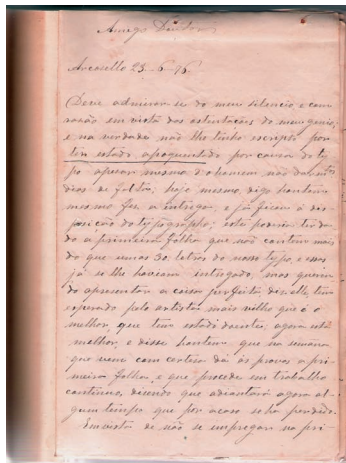 Amigo
Arcozello 23-6-76.
Deve admirar-se do meu silencio, e com
razão em vista das ostentações do meu genio,
e na verdade não lhe tinha escripto por
ter estado apoquentado por causa do ty
po apezar mesmo
dias de folha; hoje mesmo, digo hontem
mesmo fez a entrega, e já ficam á dis
posição do typographo; este poderia ter da
do a primeira folha que não contem mais
do que umas do letras do nosso typo, e essas
já se lhe haviam entregado, mas queren
do apresentar a cousa perfeita diz elle, tem
esperado pelo artista mais velho que é o
melhor, que tem estado doente, agora está
melhor, e disse hontem que na semana
que vem com certeza dá as provas a pri
meira folha, e que procede em trabalho
continuo, dizendo que adiantará agora al
gum tempo que por acaso se ha perdido.
Em vista de não se empregar na pri-